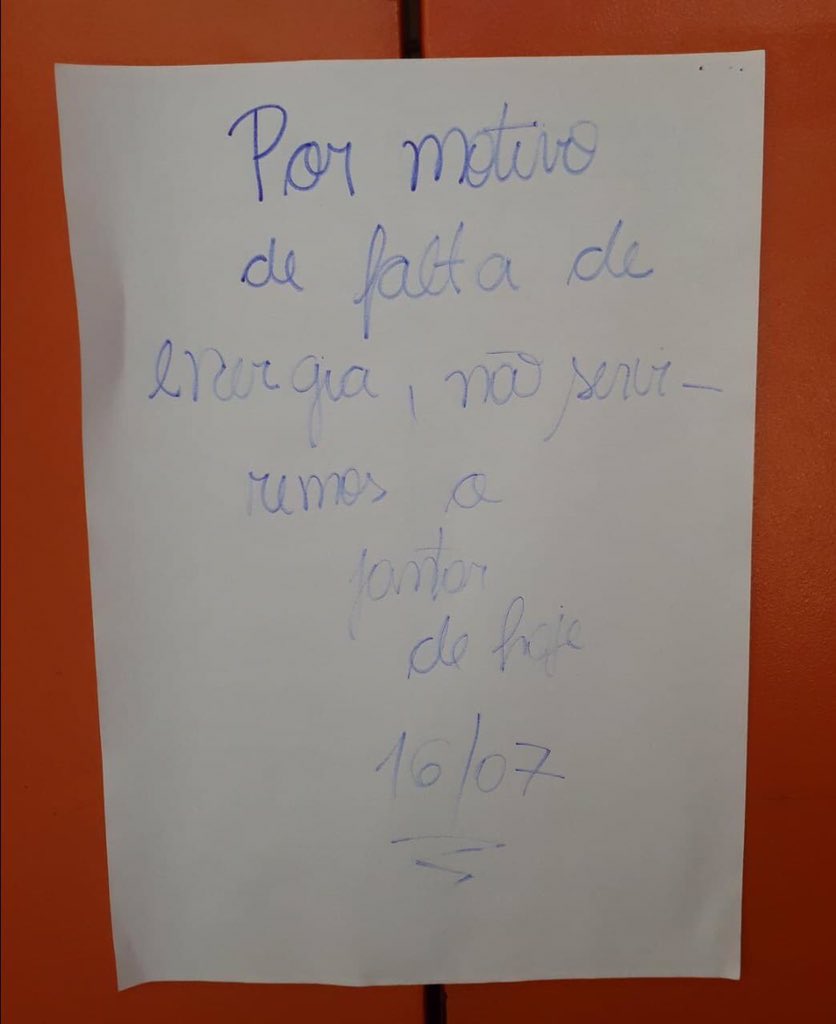 Por motivo
de falta de
energia, não servi-
remos o
jantar
de hoje
16/07